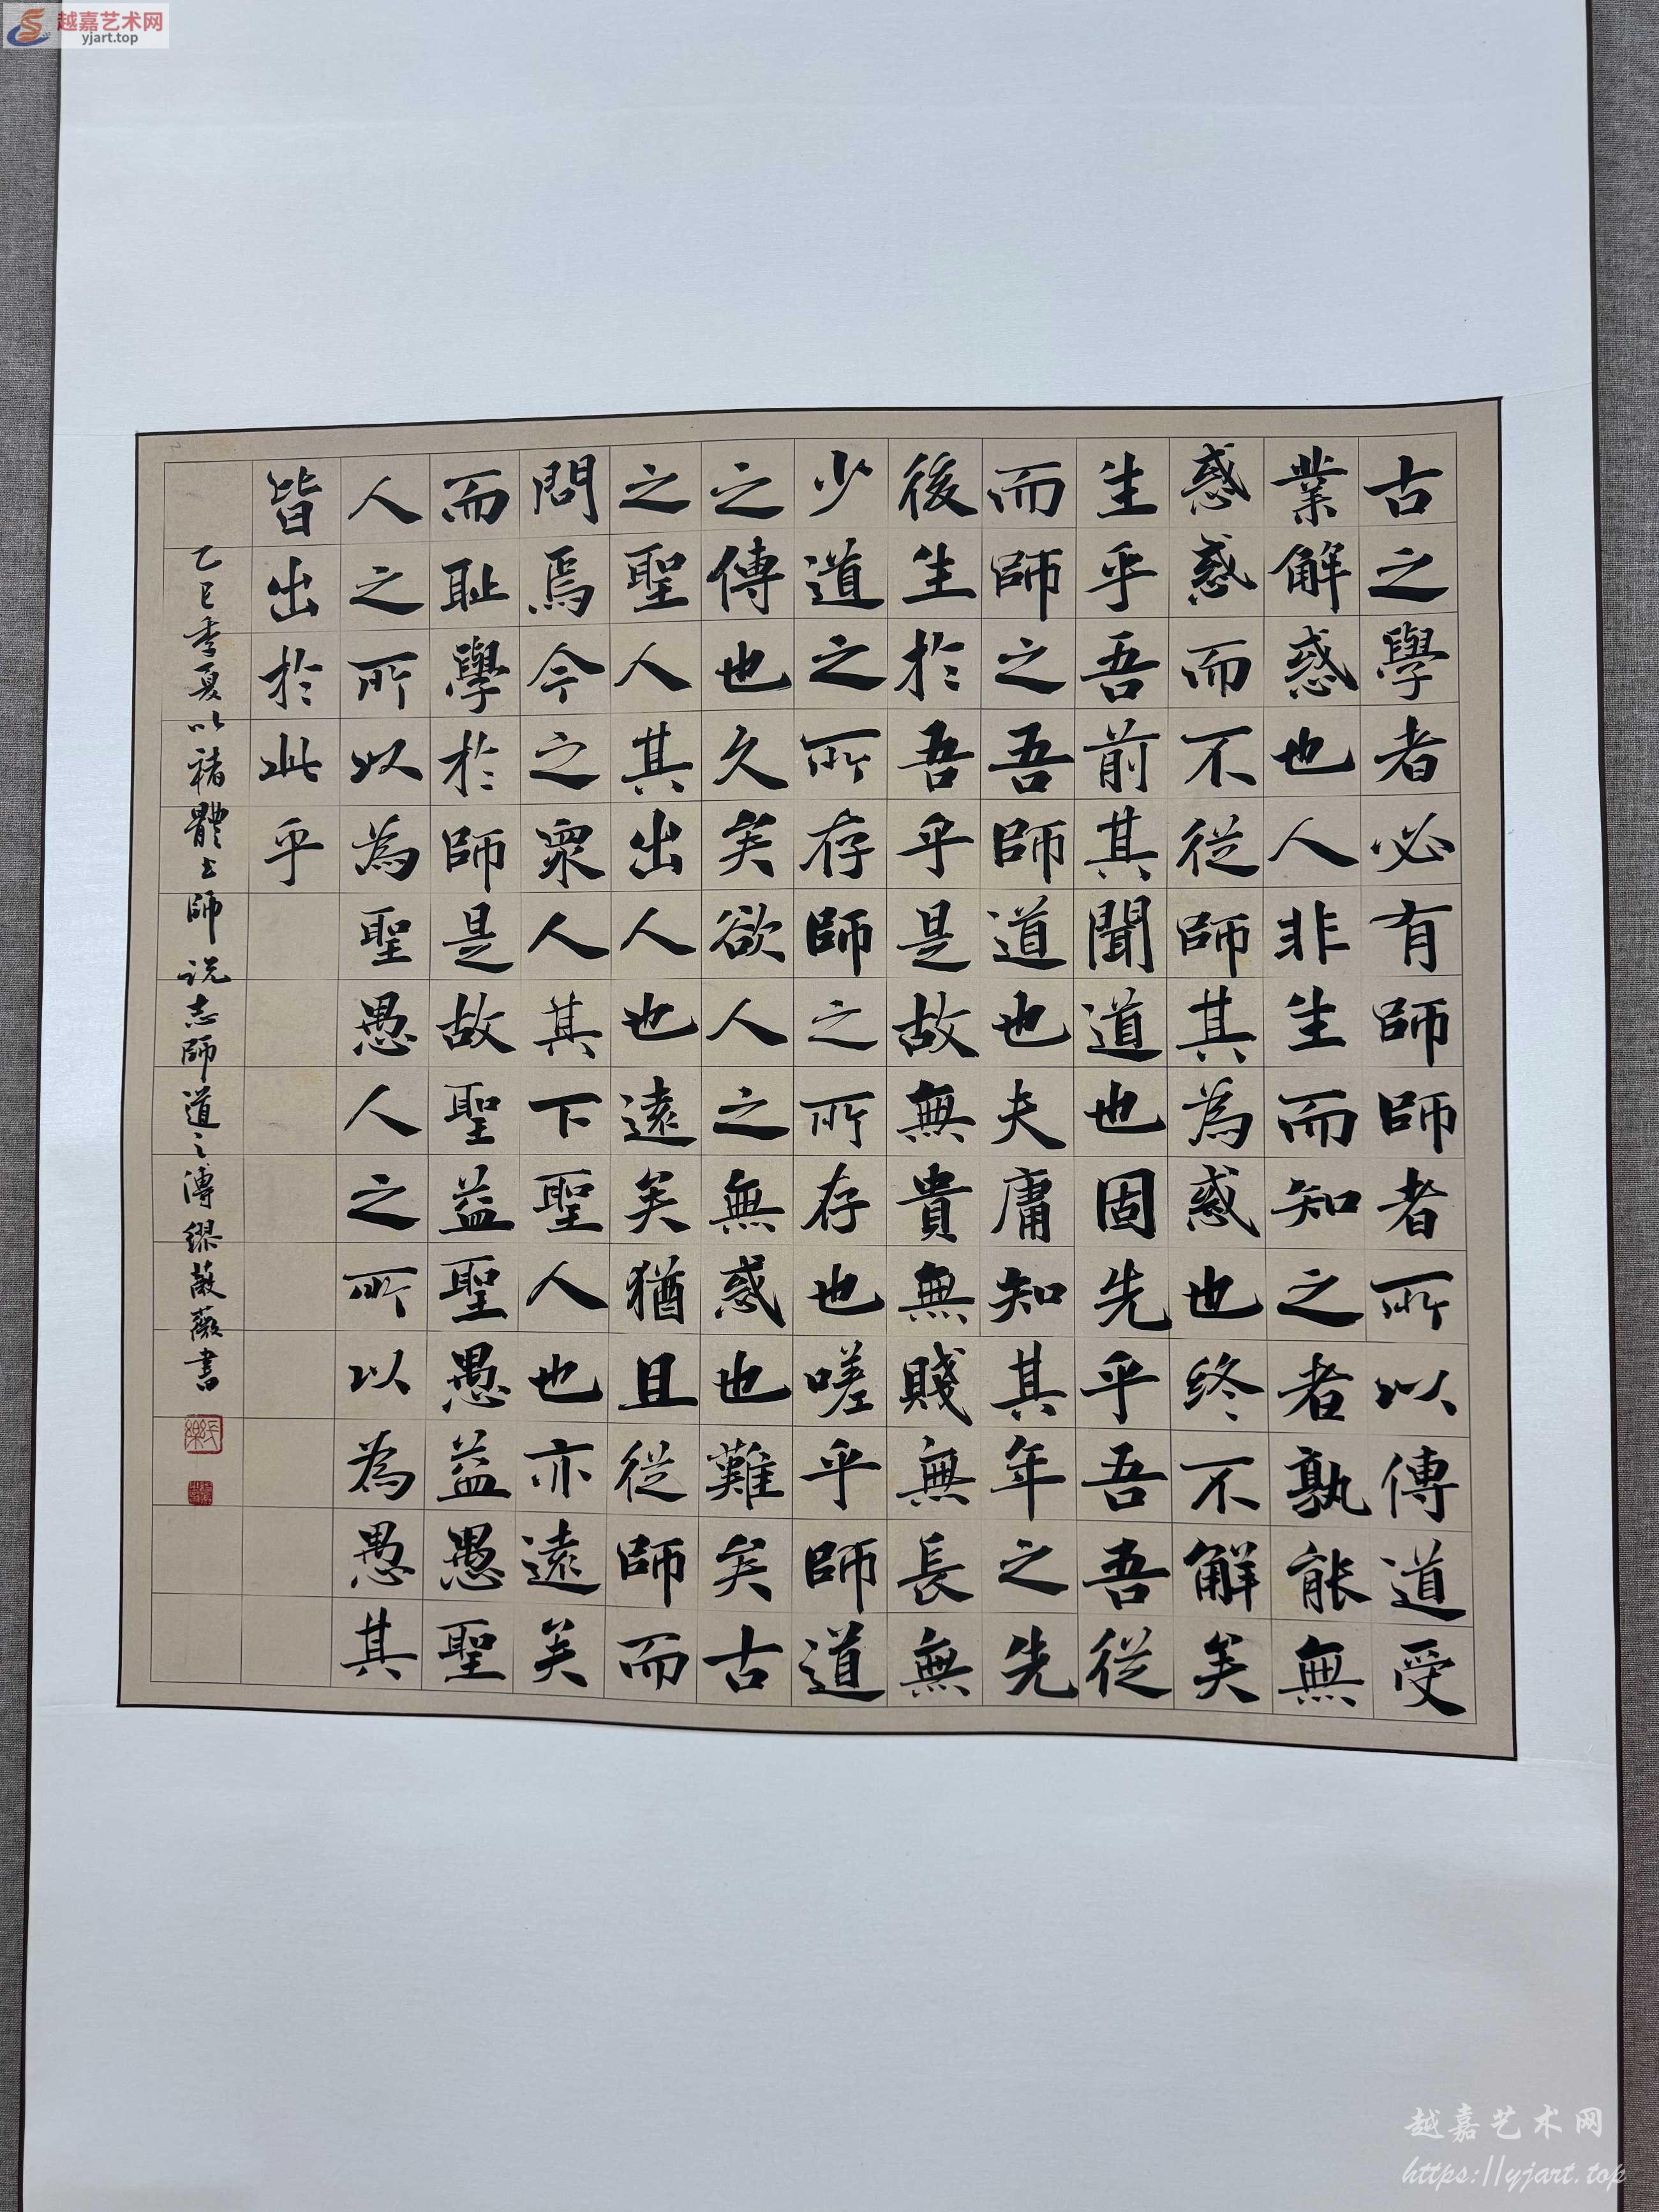 越嘉艺术网
yjart.top
古之學者必有師師者所以傳道受
業解惑也人非生而知之者孰能無
惑惑而不從師其為惑也终不解矣
生乎吾前其聞道也固先乎吾吾從
而師之吾師道也夫庸知其年之先
後生於吾乎是故無貴無賤無長無
少道之所存師之所存也嗟乎師道
之傳也久矣欲人之無惑也難矣古
之聖人其出人也遠矣猶且從師而
問焉今之眾人其下聖人也亦遠矣
而耻學於師是故聖益聖愚益愚聖
人之所以為聖愚人之所以為愚其
皆出於此乎
乙巳季夏以褚體书師说志師道之傳繆薇書
越嘉艺术网
https://yjart.top